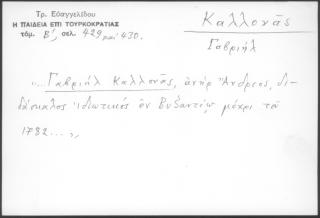 Τρ. Εὐαγγελίδου
Η ΠΑΙΔΕΙΑ ΕΠΙ ΤΟΥΡΚΟΚΡΑΤΙΑΣ
τόμ. Β', σελ. 429 καὶ 430.
Καλλονᾶς
Γαβριήλ
"...Γαβριήλ Καλλονᾶς, ἀνήρ Ἄνδρεος, δι-
δάσκαλος ἰδιωτικός ἐν Βυζαντίῳ μέχρι τοῦ
1782...,,